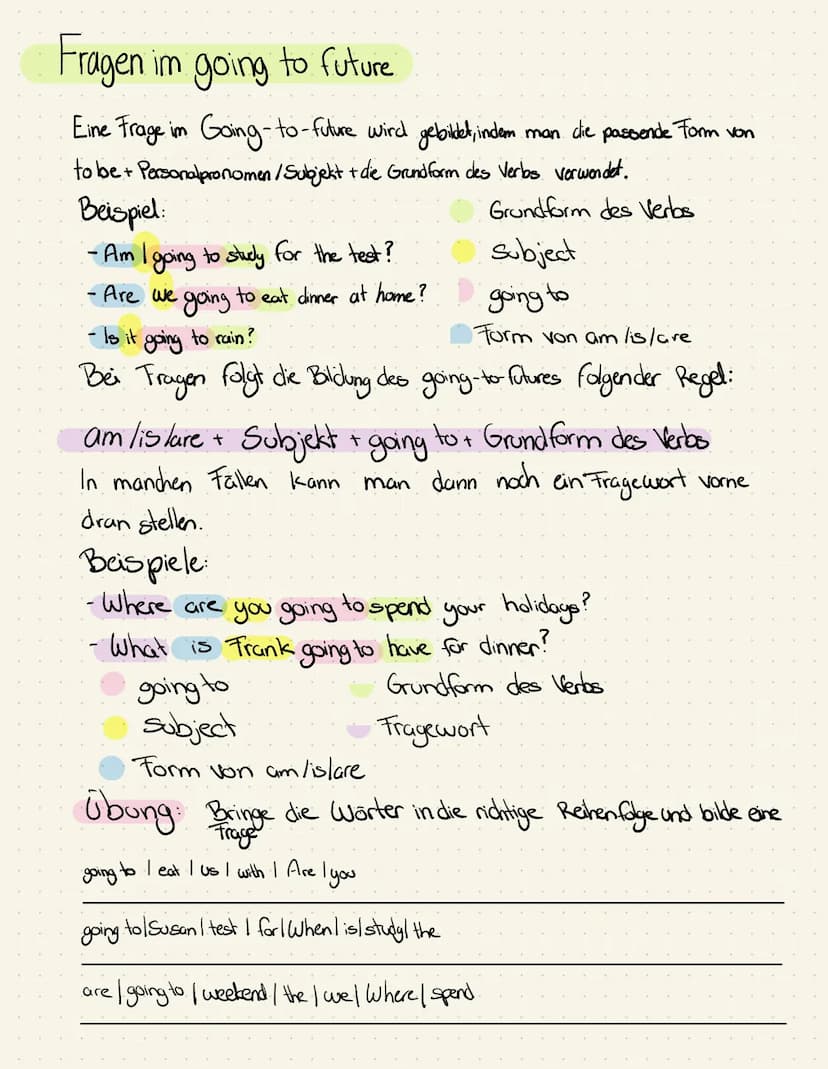 Fragen im going to future
Eine Frage im Going-to-future wird gebildet, indem man die passende Form von
to be + Personalpronomen / Subjekt + die Grundform des Verbs verwendet.
Beispiel:
Grundform des Verbs
- Am I going to study for the test?
Subject
- Are we going to eat dinner at home?
going to
- Is it going to rain?
Form von am/is/are
Bei Fragen folgt die Bildung des going-to-futures folgender Regel:
am/is/are + Subjekt + going to + Grundform des Verbs
In manchen Fällen kann man dann noch ein Fragewort vorne
dran stellen.
Beispiele:
- Where are you going to spend your holidays?
- What is Frank going to have for dinner?
going to
Grundform des Verbs
Subject
Fragewort
Form von am/is/are
Übung: Bringe die Wörter in die richtige Reihenfolge und bilde eine
Frage
going to | eat | us | with | Are | you
going to | Susan | test | for | When | is | study | the
are | going to | weekend | the | we | Where | spend